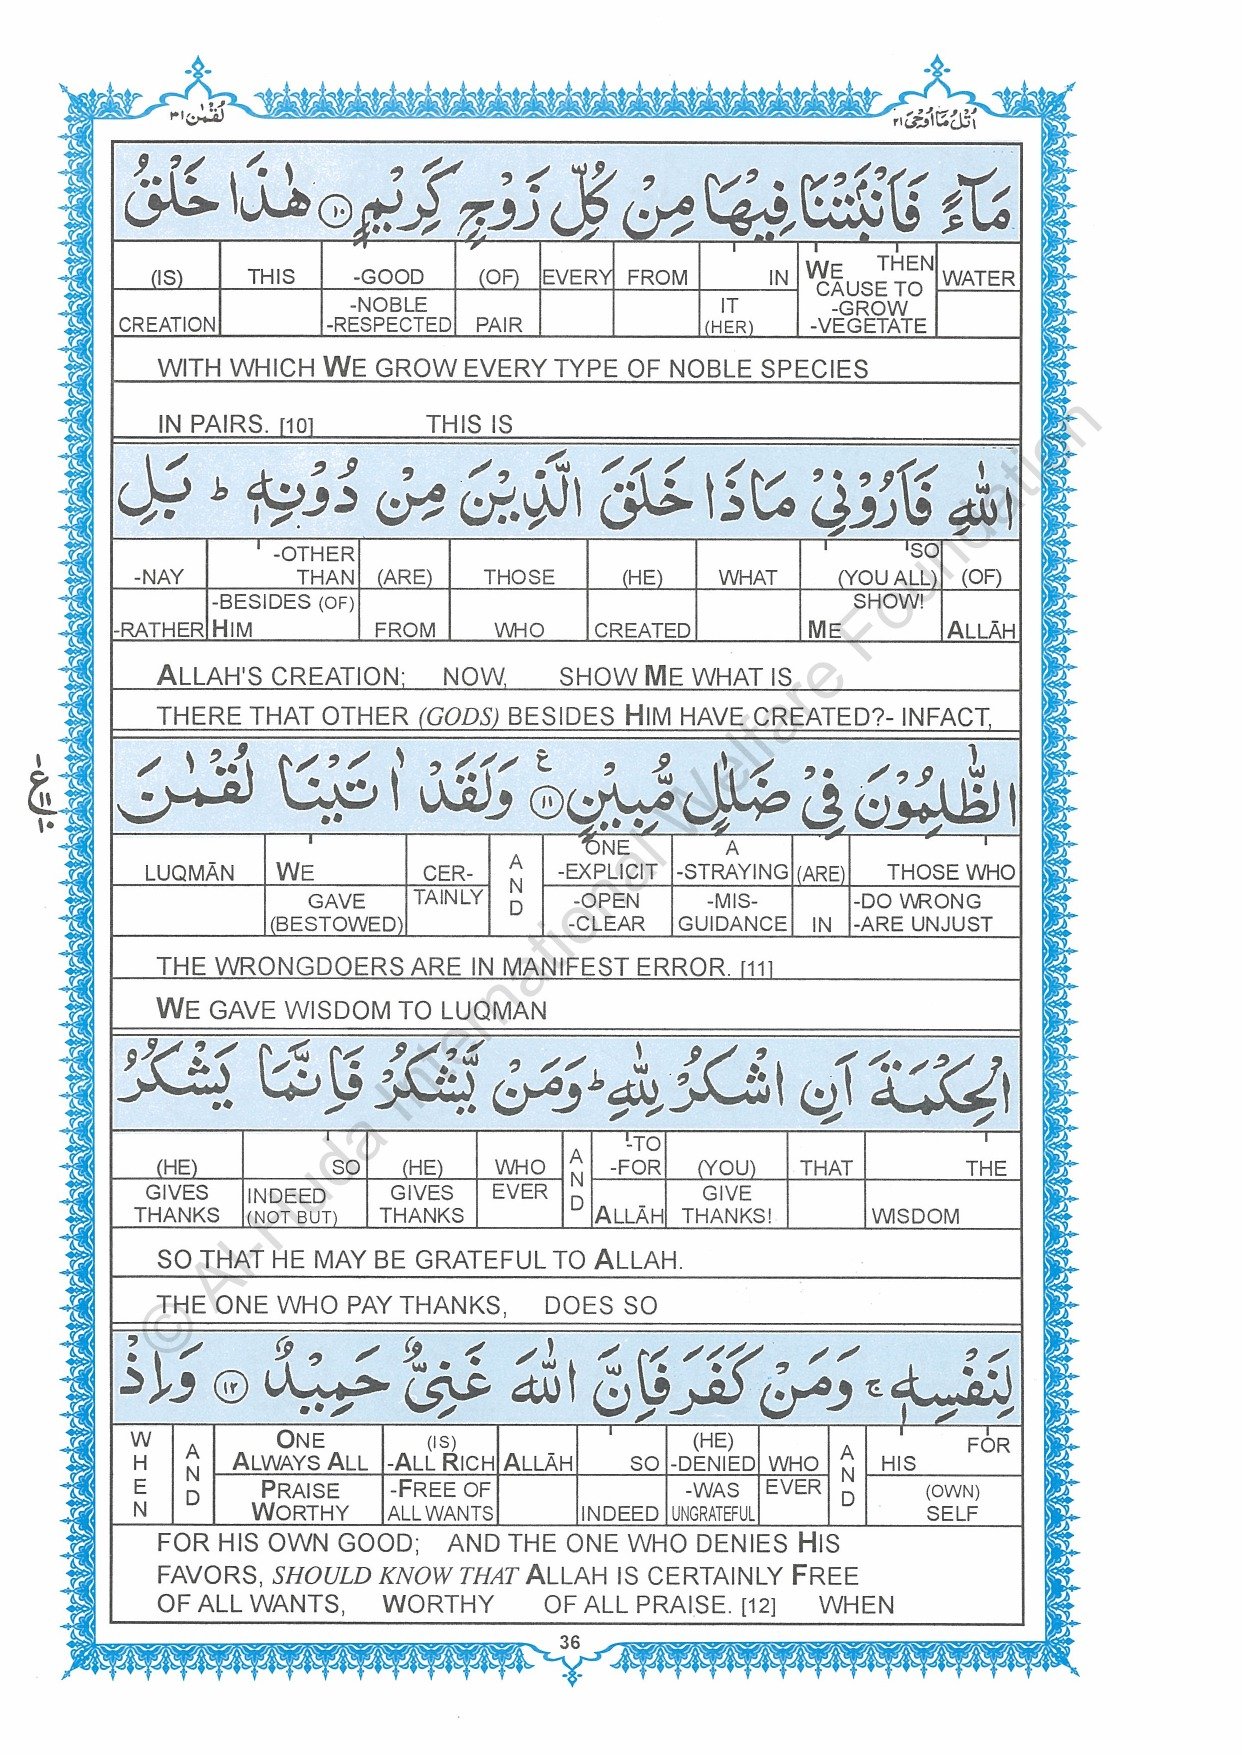 لُقْمٰن ٣١
اُتْلُ مَآ اُوْحِيَ ٢١
مَآءً فَاَنْۢبَتْنَا فِيْهَا مِنْ كُلِّ زَوْجٍ كَرِيْمٍ ١٠ هٰذَا خَلْقُ
(IS) THIS -GOOD (OF) EVERY FROM IN WE THEN WATER
CAUSE TO
CREATION -NOBLE -RESPECTED PAIR IT (HER) -GROW -VEGETATE
WITH WHICH WE GROW EVERY TYPE OF NOBLE SPECIES
IN PAIRS. [10] THIS IS
اللّٰهِ فَاَرُوْنِيْ مَاذَا خَلَقَ الَّذِيْنَ مِنْ دُوْنِهٖ ؕ بَلِ
-NAY -OTHER THAN (ARE) THOSE (HE) WHAT SO (YOU ALL) (OF)
-RATHER -BESIDES (OF) HIM FROM WHO CREATED SHOW! ME ALLĀH
ALLAH'S CREATION; NOW, SHOW ME WHAT IS
THERE THAT OTHER (GODS) BESIDES HIM HAVE CREATED?- INFACT,
الظّٰلِمُوْنَ فِيْ ضَلٰلٍ مُّبِيْنٍ ١١ ع وَلَقَدْ اٰتَيْنَا لُقْمٰنَ
١ ع ١١ ١٠
LUQMĀN WE CER- AND ONE -EXPLICIT A -STRAYING (ARE) THOSE WHO
GAVE (BESTOWED) TAINLY -OPEN -CLEAR -MIS- GUIDANCE IN -DO WRONG -ARE UNJUST
THE WRONGDOERS ARE IN MANIFEST ERROR. [11]
WE GAVE WISDOM TO LUQMAN
الْحِكْمَةَ اَنِ اشْكُرْ لِلّٰهِ ؕ وَمَنْ يَّشْكُرْ فَاِنَّمَا يَشْكُرُ
(HE) SO (HE) WHO AND -TO -FOR (YOU) THAT THE
GIVES THANKS INDEED (NOT BUT) GIVES THANKS EVER ALLĀH GIVE THANKS! WISDOM
SO THAT HE MAY BE GRATEFUL TO ALLAH.
THE ONE WHO PAY THANKS, DOES SO
لِنَفْسِهٖ ۚ وَمَنْ كَفَرَ فَاِنَّ اللّٰهَ غَنِيٌّ حَمِيْدٌ ١٢ وَاِذْ
WHEN AND ONE ALWAYS ALL (IS) -ALL RICH ALLĀH SO (HE) -DENIED WHO AND HIS FOR
PRAISE WORTHY -FREE OF ALL WANTS INDEED -WAS UNGRATEFUL EVER (OWN) SELF
FOR HIS OWN GOOD; AND THE ONE WHO DENIES HIS
FAVORS, SHOULD KNOW THAT ALLAH IS CERTAINLY FREE
OF ALL WANTS, WORTHY OF ALL PRAISE. [12] WHEN
36
© Al-Huda International Welfare Foundation